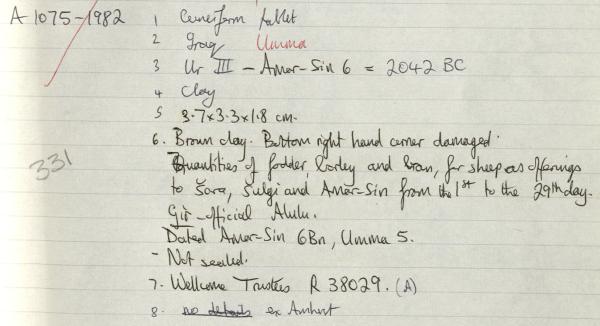 A 1075-1982
1 Cuneiform tablet
2 Iraq Umma
3 Ur III - Amar-Sin 6 = 2042 BC
4 Clay
5 3.7x3.3x1.8 cm.
6. Brown clay. Bottom right hand corner damaged.
Quantities of fodder, barley and bran, for sheep as offerings
to Šara, Šulgi and Amar-Sin from the 1st to the 29th day.
Gìr-official Alulu.
Dated Amar-Sin 6Bn, Umma 5.
- Not sealed.
331
7. Wellcome Trustees R 38029. (A)
8. no details ex Amherst